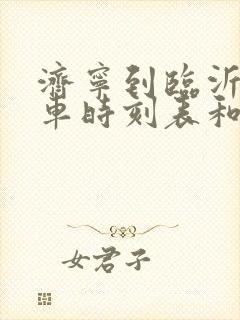 濟寧到臨沂
車時刻表和
女君子